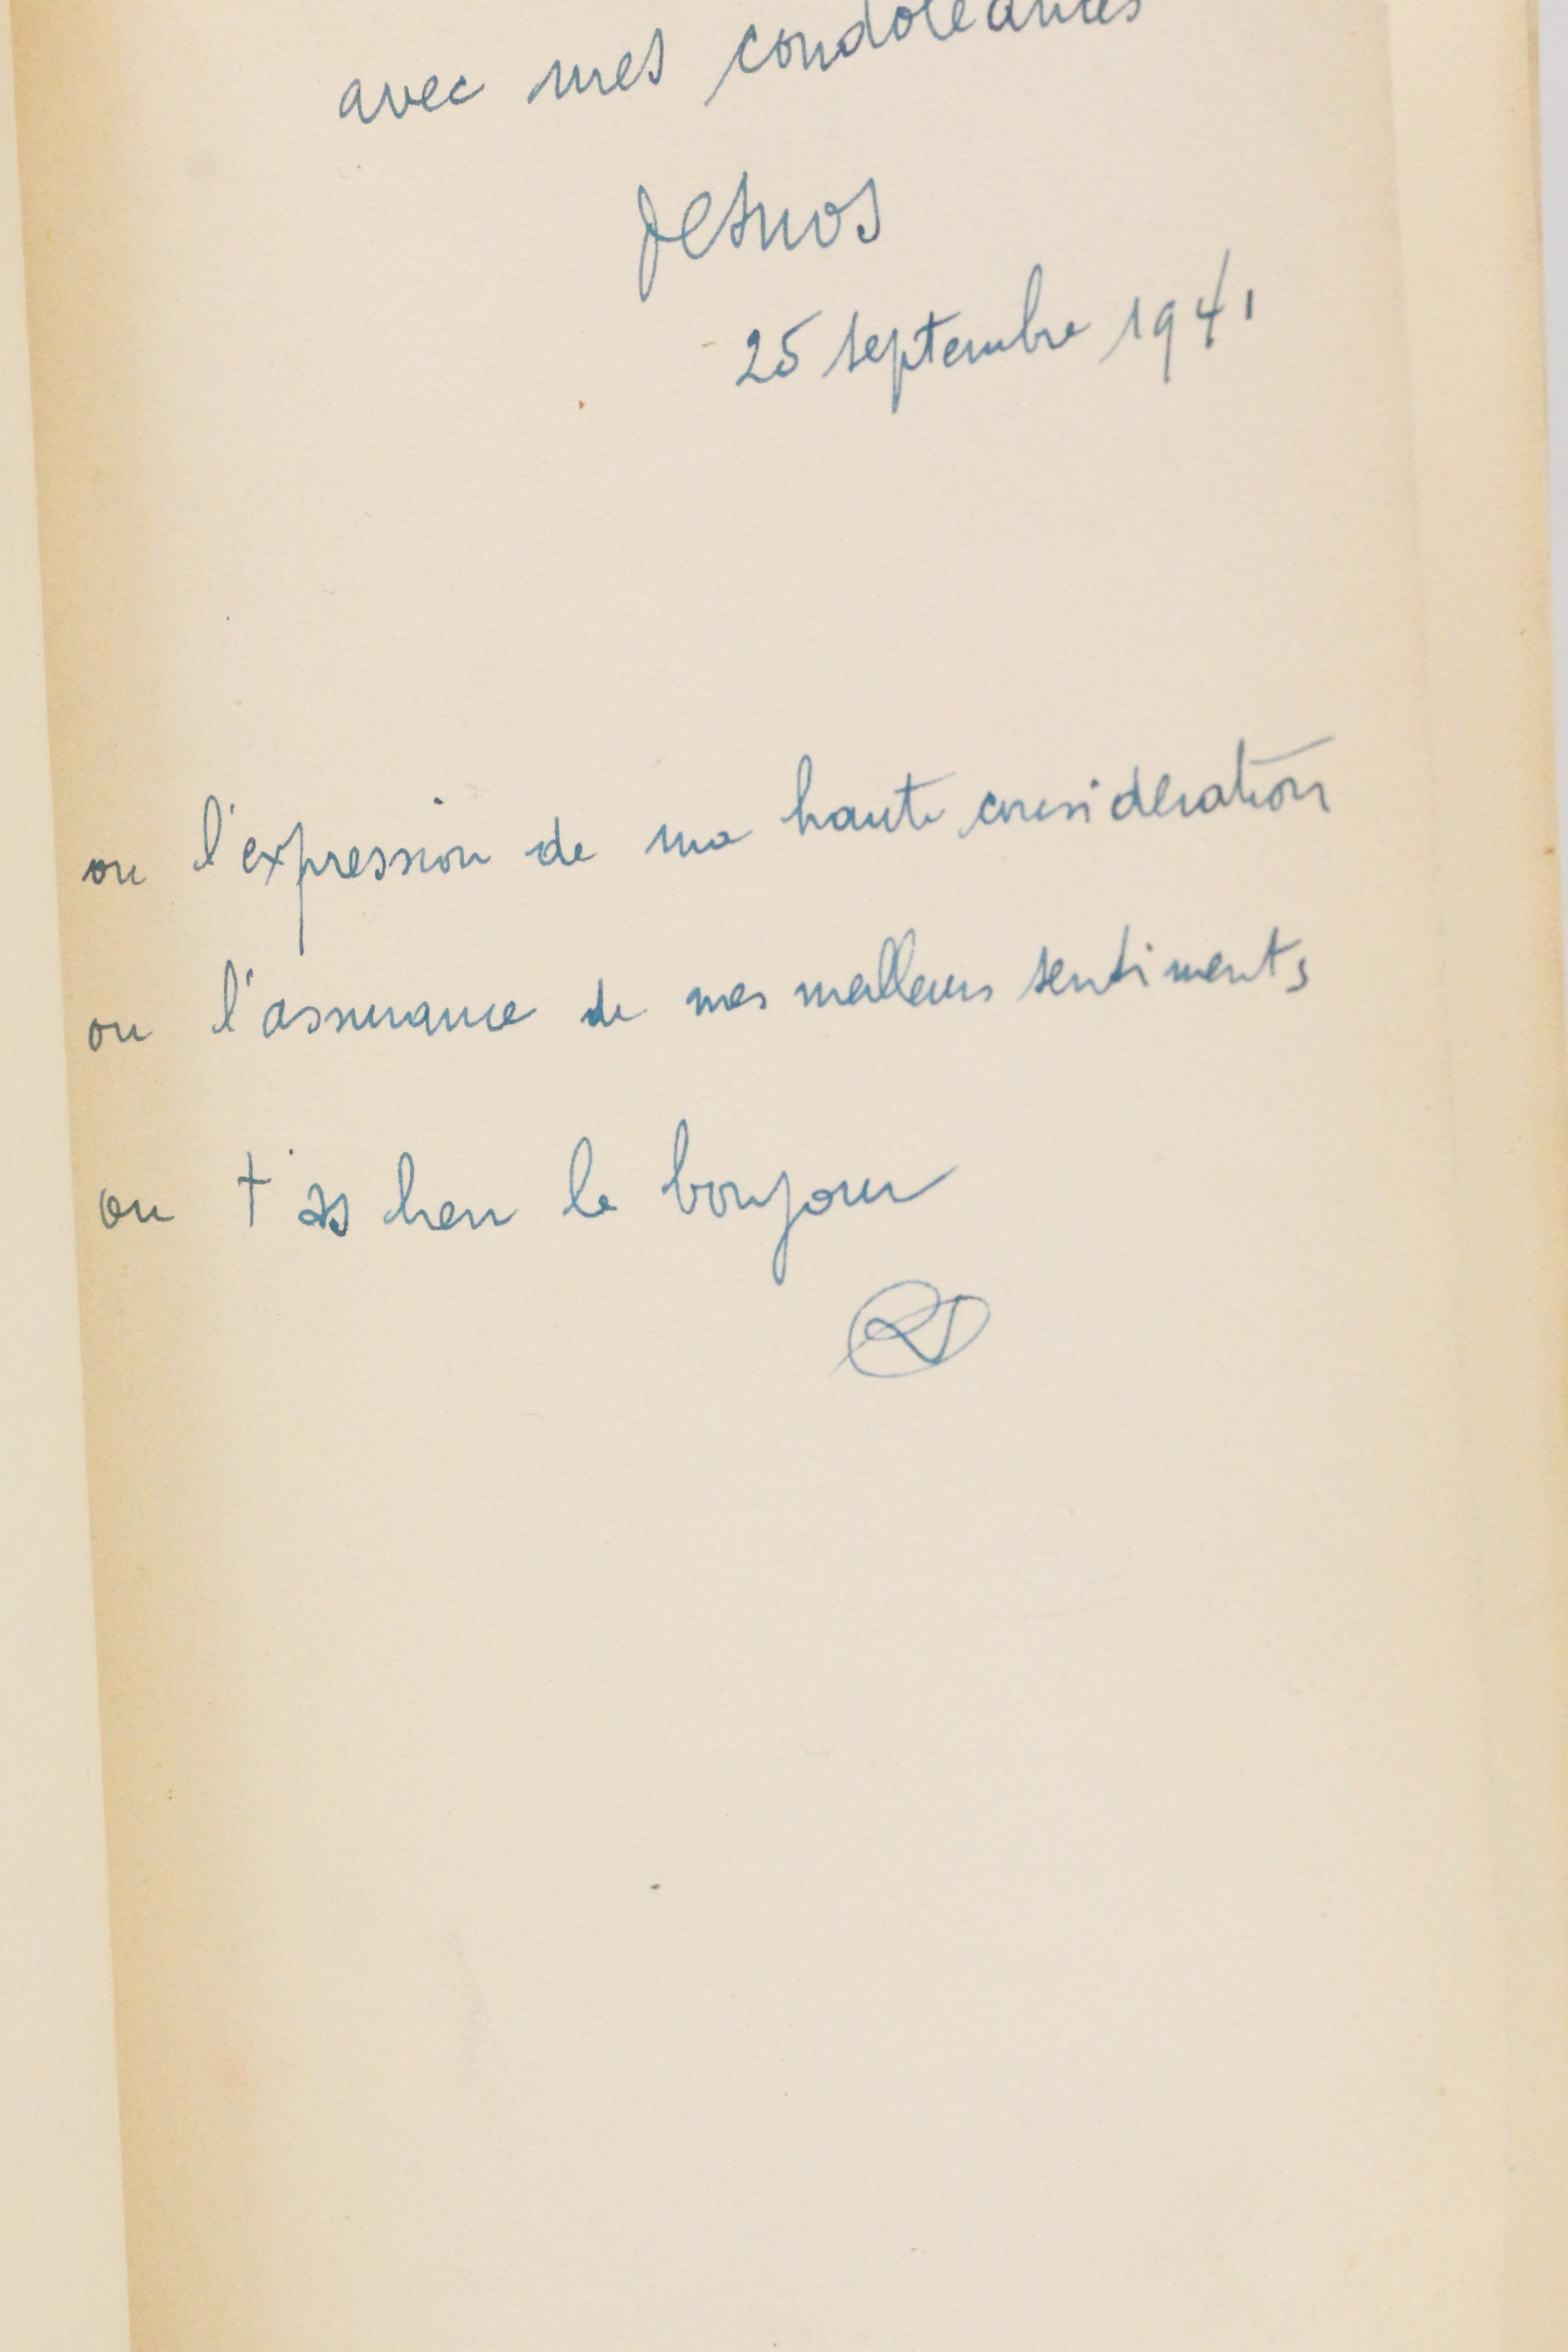 avec mes condoléances
Desnos
25 septembre 1941
ou l'expression de ma haute considération
ou l'assurance de mes meilleurs sentiments
ou t'as bien le bonjour
RD